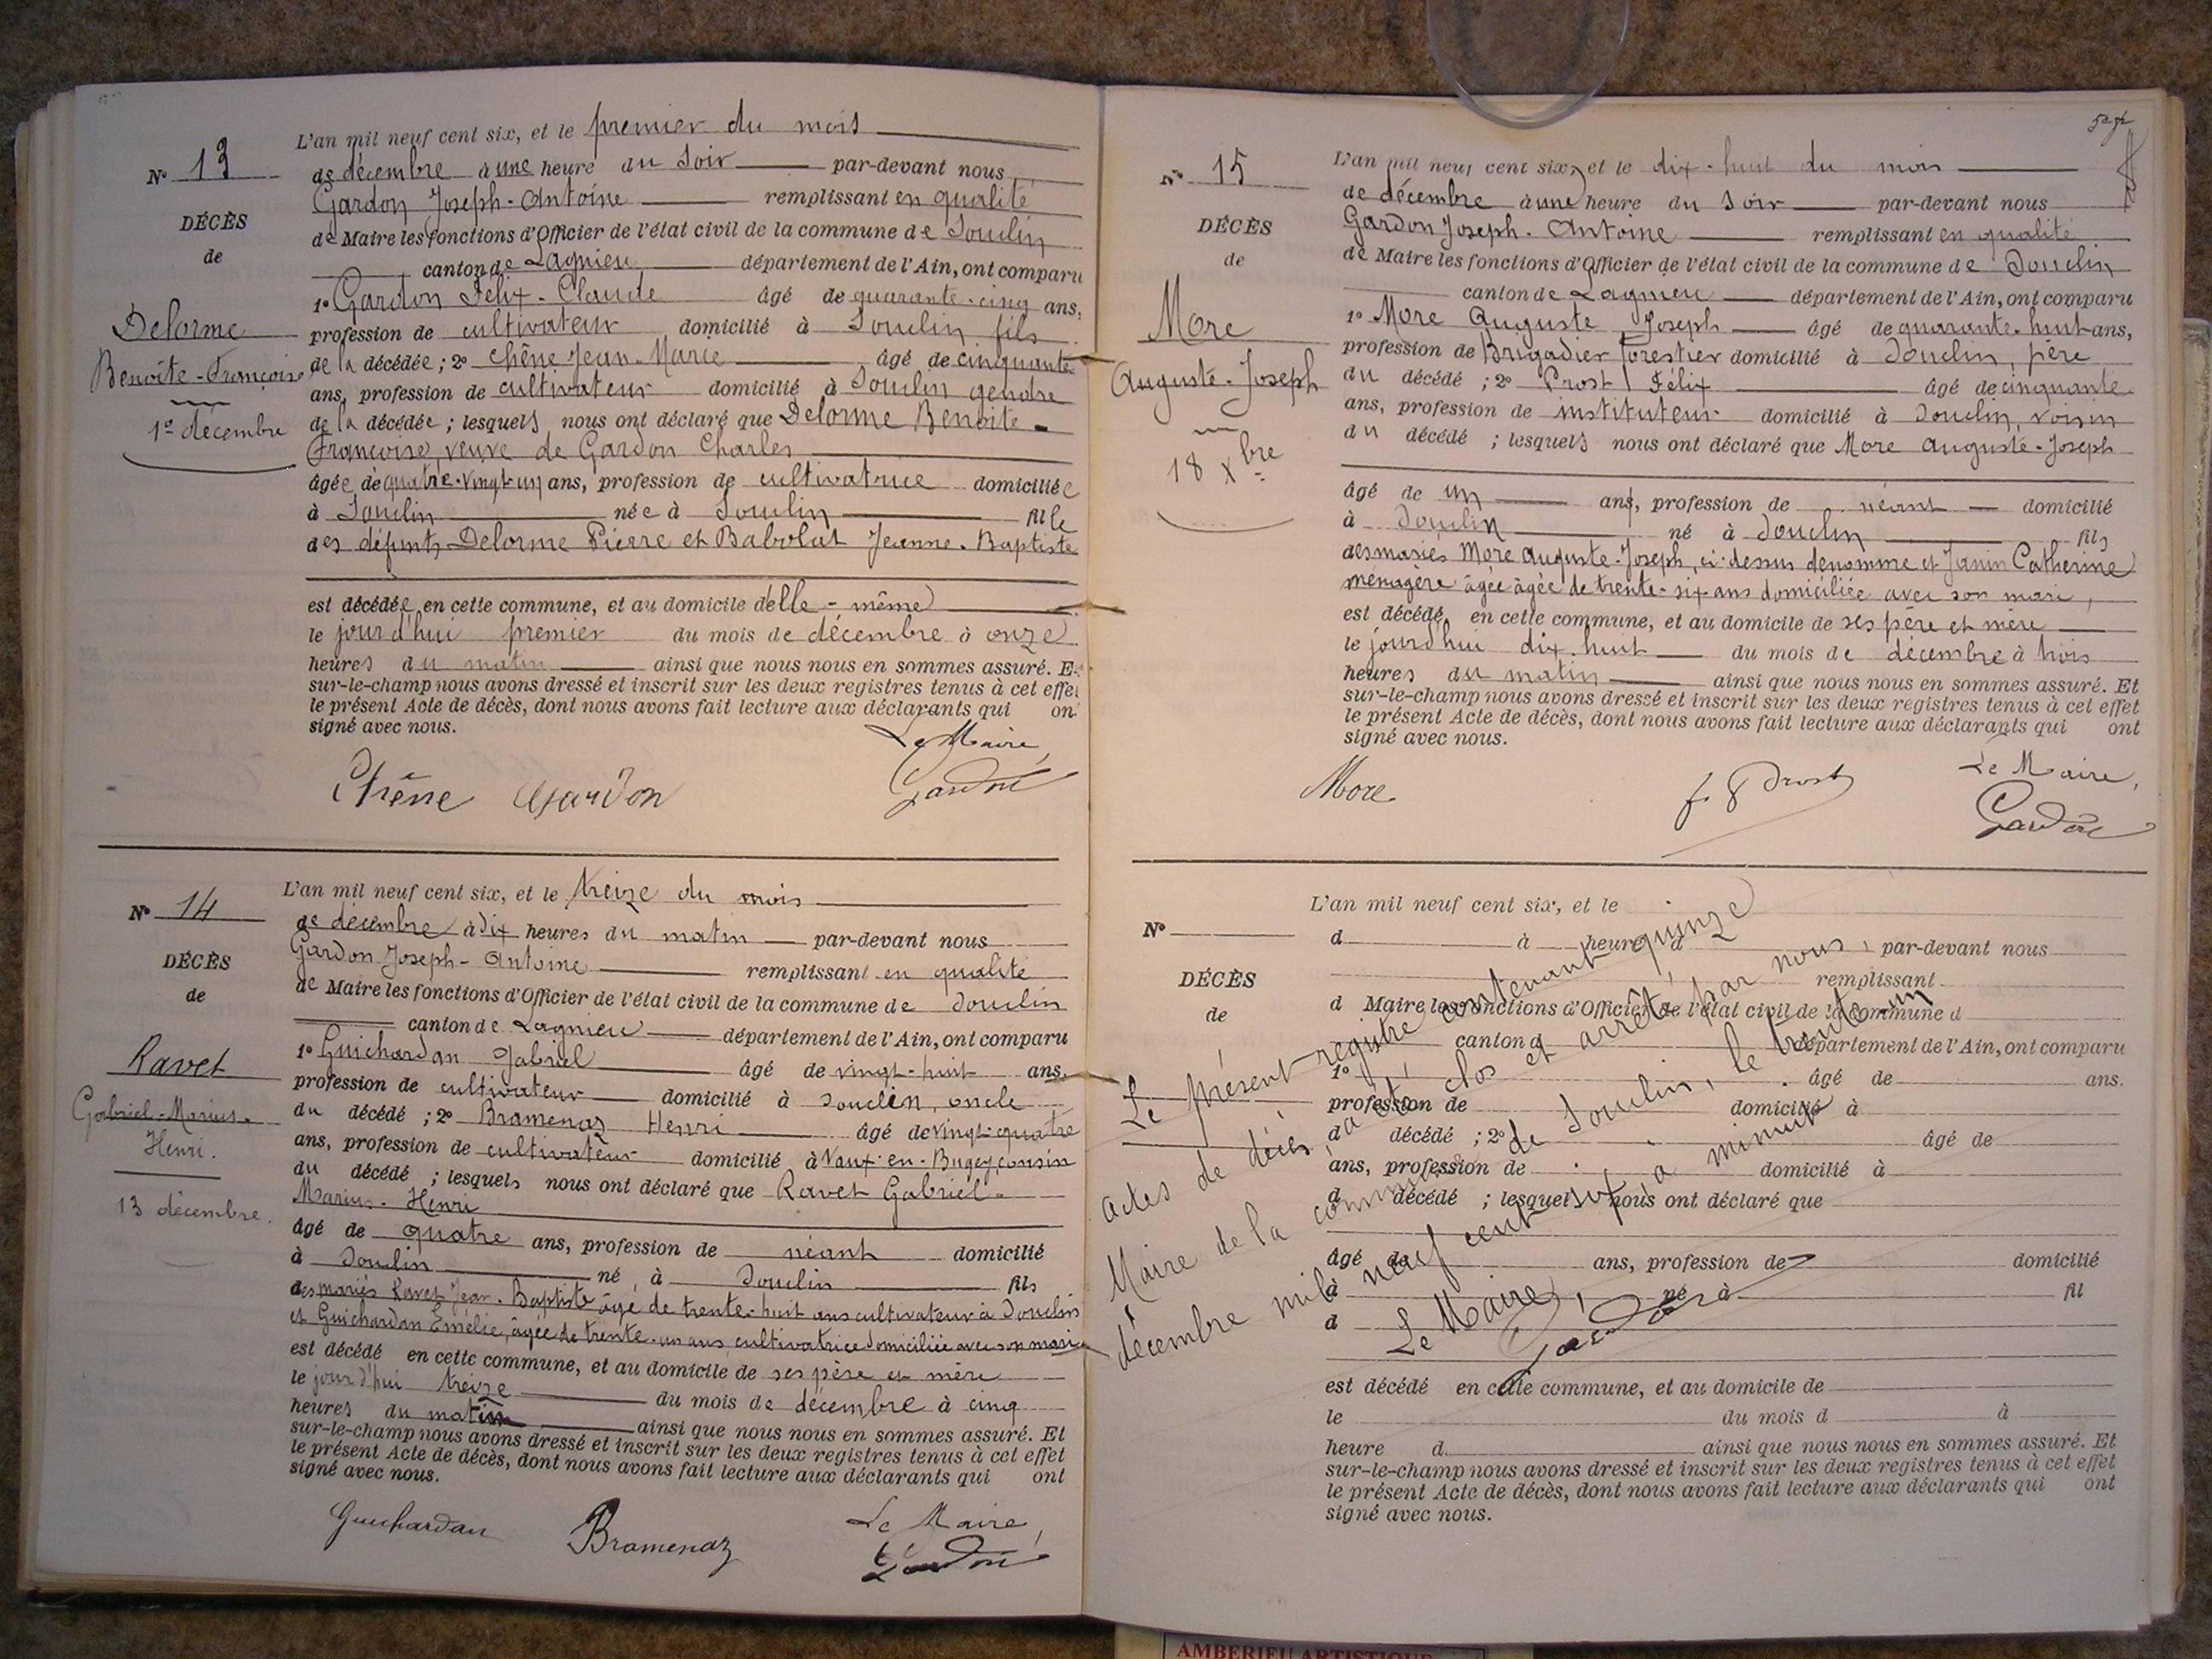 L'an mil neuf cent six, et le premier du mois
N° 13
de décembre à une heure du soir par-devant nous
Gardon Joseph-Antoine remplissant en qualité
DÉCÈS
de Maire les fonctions d'Officier de l'état civil de la commune de Souclin
de
canton de Lagnieu département de l'Ain, ont comparu
1° Gardon Félix-Claude âgé de quarante-cinq ans,
Delorme
profession de cultivateur domicilié à Souclin fils
Benoîte-Françoise
de la décédée ; 2° Chêne Jean-Marie âgé de cinquante
ans, profession de cultivateur domicilié à Souclin gendre
1er décembre
de la décédée ; lesquels nous ont déclaré que Delorme Benoîte-
Françoise, veuve de Gardon Charles
âgée de quatre-vingt-un ans, profession de cultivatrice domiciliée
à Souclin née à Souclin fille
des défunts Delorme Pierre et Babolat Jeanne-Baptiste
est décédée en cette commune, et au domicile d'elle-même
le jourd'hui premier du mois de décembre à onze
heures du matin ainsi que nous nous en sommes assuré. Et
sur-le-champ nous avons dressé et inscrit sur les deux registres tenus à cet effet
le présent Acte de décès, dont nous avons fait lecture aux déclarants qui ont
signé avec nous.
Le Maire,
Chêne Gardon Gardon
L'an mil neuf cent six, et le treize du mois
N° 14
de décembre à dix heures du matin par-devant nous
Gardon Joseph-Antoine remplissant en qualité
DÉCÈS
de Maire les fonctions d'Officier de l'état civil de la commune de Souclin
de
canton de Lagnieu département de l'Ain, ont comparu
1° Guichardan Gabriel âgé de vingt-huit ans.
Ravet
profession de cultivateur domicilié à Souclin, oncle
Gabriel-Marius-
du décédé ; 2° Bramenaz Henri âgé de vingt-quatre
Henri.
ans, profession de cultivateur domicilié à Vaux-en-Bugey cousin
du décédé ; lesquels nous ont déclaré que Ravet Gabriel-
13 décembre.
Marius-Henri
âgé de quatre ans, profession de néant domicilié
à Souclin né à Souclin fils
des mariés Ravet Jean-Baptiste âgé de trente-huit ans cultivateur à Souclin
et Guichardan Emélie, âgée de trente-un ans cultivatrice domiciliée avec son mari
est décédé en cette commune, et au domicile de ses père et mère
le jourd'hui treize du mois de décembre à cinq
heures du matin ainsi que nous nous en sommes assuré. Et
sur-le-champ nous avons dressé et inscrit sur les deux registres tenus à cet effet
le présent Acte de décès, dont nous avons fait lecture aux déclarants qui ont
signé avec nous.
Le Maire,
Guichardan Bramenaz Gardon
L'an mil neuf cent six, et le dix-huit du mois
N° 15
de décembre à une heure du soir par-devant nous
Gardon Joseph-Antoine remplissant en qualité
DÉCÈS
de Maire les fonctions d'Officier de l'état civil de la commune de Souclin
de
canton de Lagnieu département de l'Ain, ont comparu
1° More Auguste Joseph âgé de quarante-huit ans,
More
profession de Brigadier forestier domicilié à Souclin, père
Auguste-Joseph
du décédé ; 2° Prost Félix âgé de cinquante
ans, profession de instituteur domicilié à Souclin, voisin
18 Xbre
du décédé ; lesquels nous ont déclaré que More Auguste-Joseph
âgé de un ans, profession de néant domicilié
à Souclin né à Souclin fils
des mariés More Auguste-Joseph, ci-dessus dénommé et Janin Catherine
ménagère âgée âgée de trente-six ans domiciliée avec son mari,
est décédé en cette commune, et au domicile de ses père et mère
le jourd'hui dix-huit du mois de décembre à trois
heures du matin ainsi que nous nous en sommes assuré. Et
sur-le-champ nous avons dressé et inscrit sur les deux registres tenus à cet effet
le présent Acte de décès, dont nous avons fait lecture aux déclarants qui ont
signé avec nous.
Le Maire,
More F. Prost Gardon
L'an mil neuf cent six, et le
N°
d à heure d par-devant nous
remplissant
DÉCÈS
d Maire les fonctions d'Officier de l'état civil de la commune d
de
canton d département de l'Ain, ont comparu
1° âgé de ans.
profession de domicilié à
d décédé ; 2° âgé de
ans, profession de domicilié à
d décédé ; lesquels nous ont déclaré que
âgé de ans, profession de domicilié
à né à fil
d
est décédé en cette commune, et au domicile de
le du mois d à
heure d ainsi que nous nous en sommes assuré. Et
sur-le-champ nous avons dressé et inscrit sur les deux registres tenus à cet effet
le présent Acte de décès, dont nous avons fait lecture aux déclarants qui ont
signé avec nous.
Le présent registre contenant quinze
actes de décès, a été clos et arrêté par nous,
Maire de la commune de Souclin, le trente-un
décembre mil neuf cent six, à minuit
Le Maire,
Gardon
AMBERIEU ARTISTIQUE